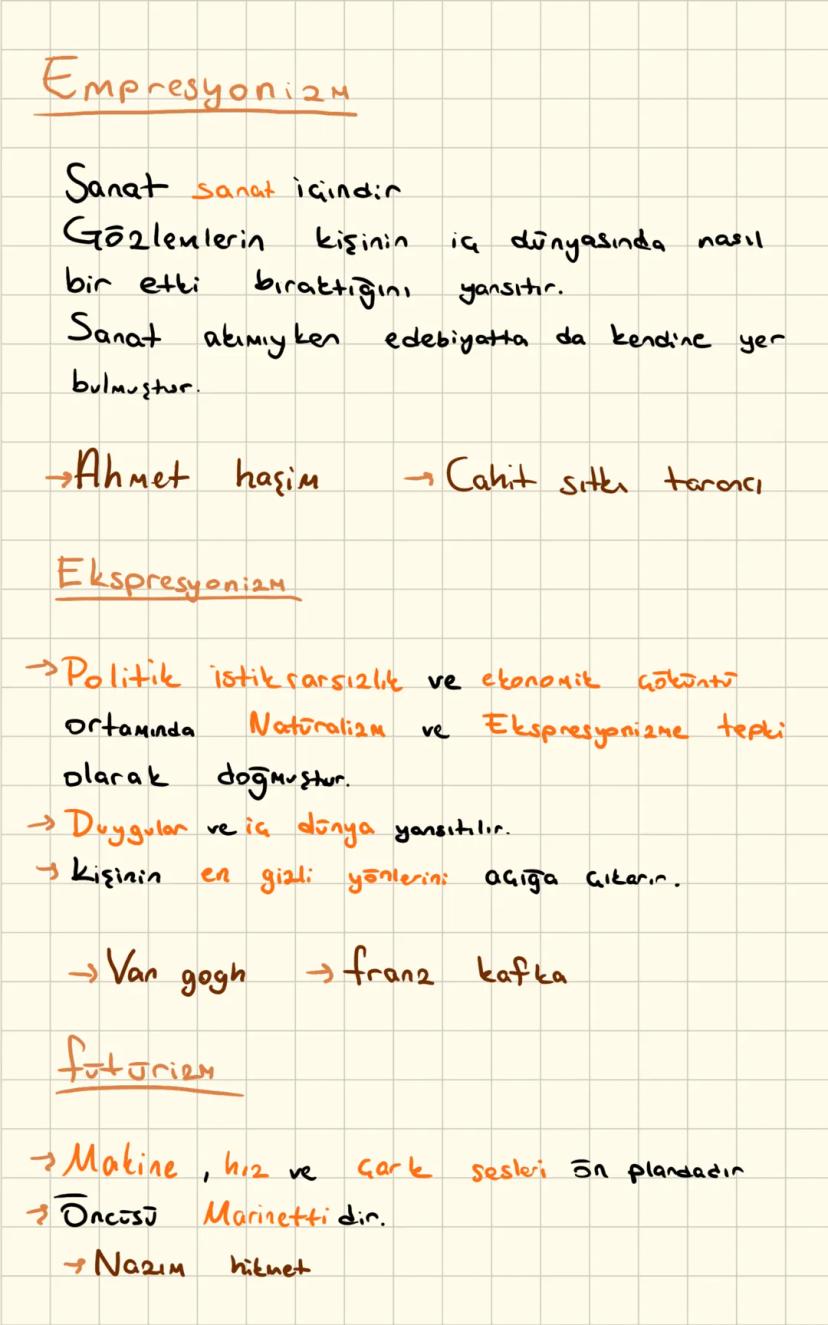 Empresyonizm
Sanat sanat içindir
Gözlemlerin kişinin iç dünyasında nasıl
bir etki bıraktığını yansıtır.
Sanat akımıyken edebiyatta da kendine yer
bulmuştur.
→Ahmet haşim → Cahit sıtkı tarancı
Ekspresyonizm
→Politik istikrarsızlık ve ekonomik çöküntü
ortamında Natüralizm ve Ekspresyonizme tepki
olarak doğmuştur.
→ Duygular ve iç dünya yansıtılır.
→ Kişinin en gizli yönlerini açığa çıkarır.
→ Van gogh → franz kafka
fütürizm
→ Makine, hız ve çark sesleri ön plandadır
→ Öncüsü Marinetti dir.
→ Nazım hikmet